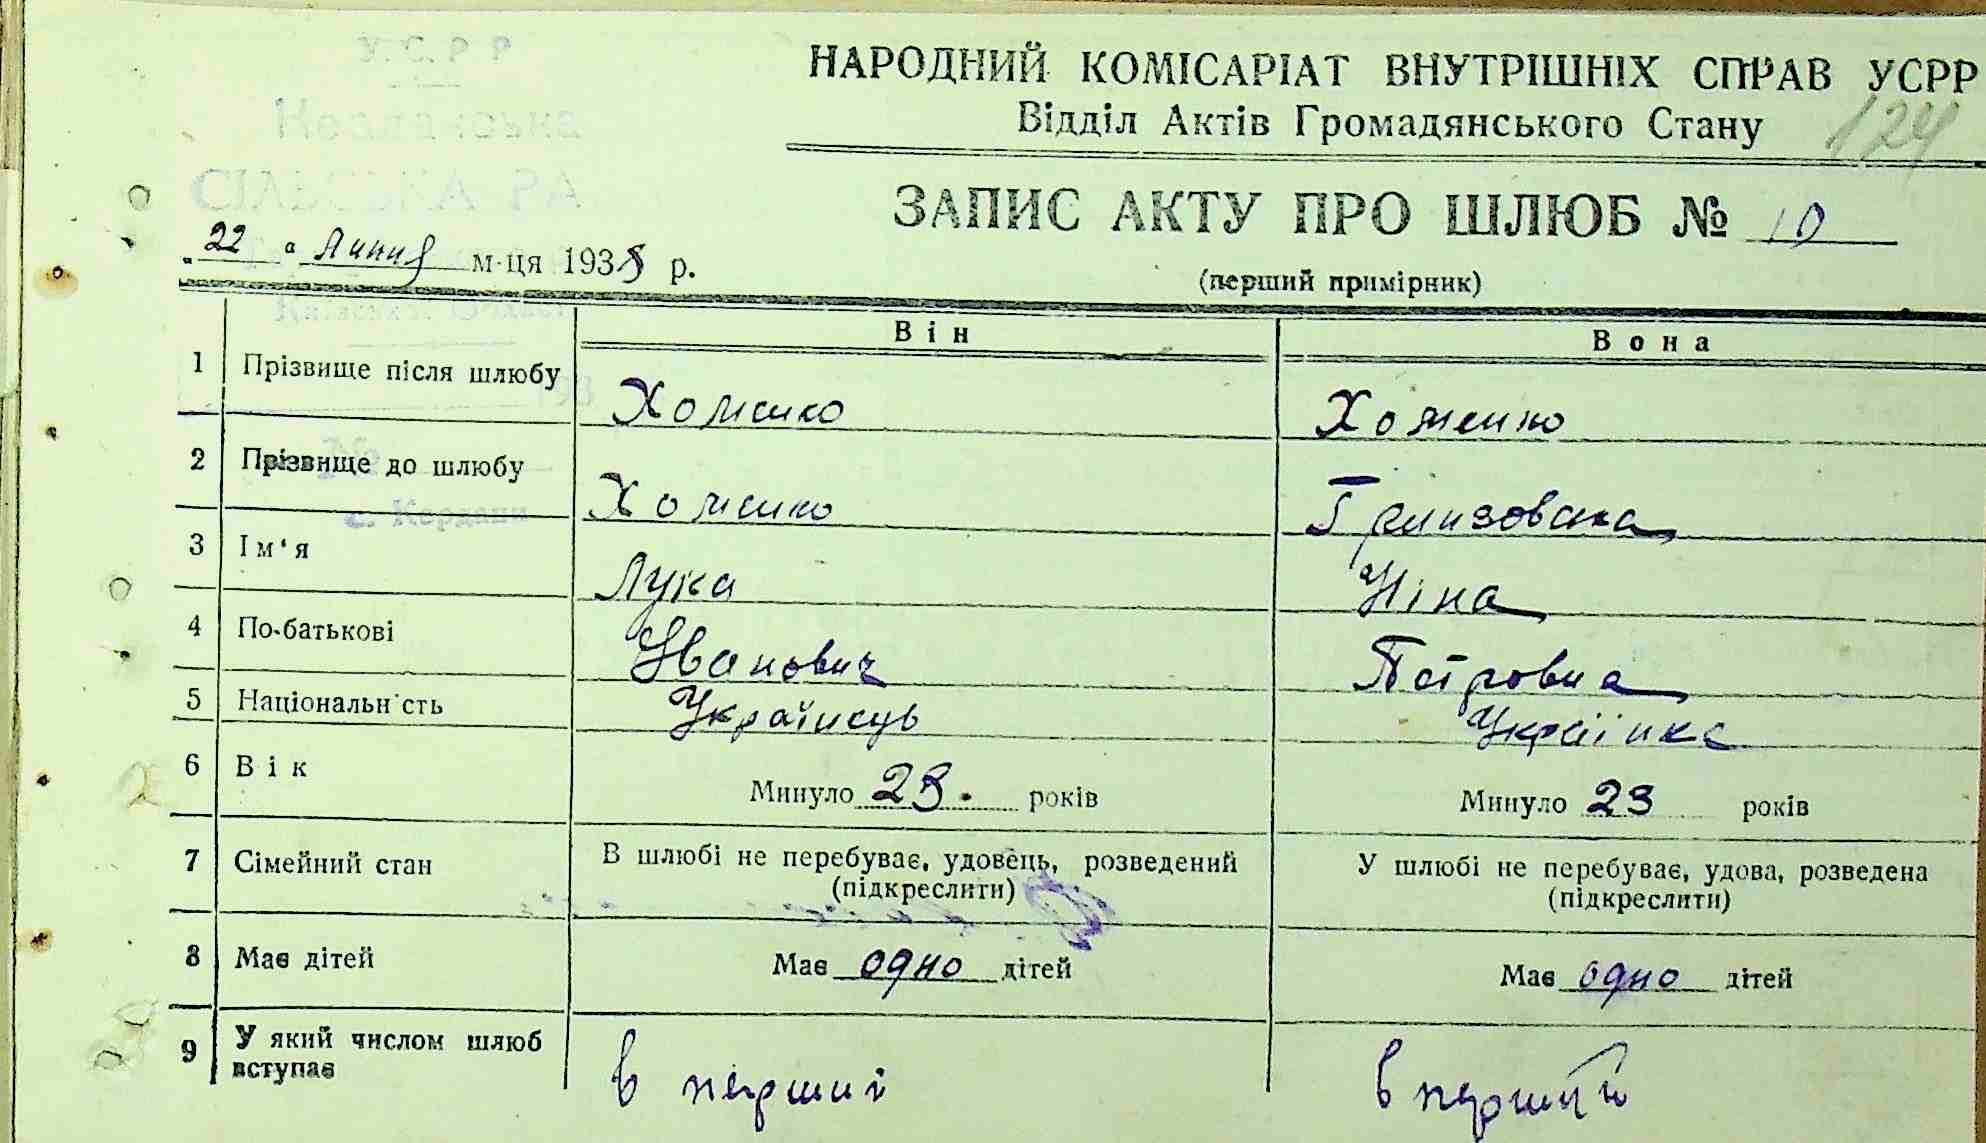 У.С.Р.Р
НАРОДНИЙ КОМІСАРІАТ ВНУТРІШНІХ СПРАВ УСРР
Відділ Актів Громадянського Стану
124
СІЛЬСЬКА РА
ЗАПИС АКТУ ПРО ШЛЮБ № 10
„22“ Липня м-ця 1935 р.
(перший примірник)
Він
Вона
1 Прізвище після шлюбу Хоменко Хоменко
2 Прізвище до шлюбу Хоменко
с. Кердани
3 Ім'я Лука Ніна
4 По-батькові Иванович Петровна
5 Національність Українець Українка
6 Вік Минуло 23. років Минуло 23 років
7 Сімейний стан В шлюбі не перебуває, удовець, розведений (підкреслити) У шлюбі не перебуває, удова, розведена (підкреслити)
8 Має дітей Має одно дітей Має одно дітей
9 У який числом шлюб вступає в перший в перший